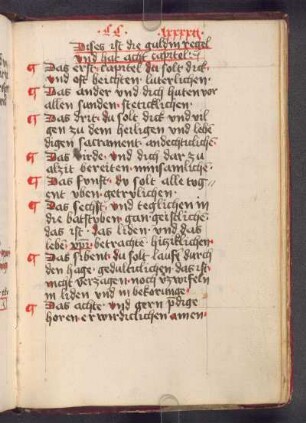 CC · lxxxxii
Dises ist die guldin regel
und hat acht capitel ·
Das erst capitel du solt dick
und oft beichten luterlichen ·
Das ander und dich huten vor
allen sunden stericklichen ·
Das drit du solt dick und vil
gen zu dem heiligen und lebe
digen sacrament andechticliche
Das vierde · und dich dar zu
alzit bereiten minsamliche
Das funft · du solt alle tog
ent uben getrulichen ·
Das sechst · und teglichen in
die batstuben gan geistliche
das ist · das liden und das
lebe xpi betrachte hitzklichen ·
Das sibent du solt lauff durch
den hage gedultclichen das ist
nicht verzagen noch zwifeln
in liden und in bekorunge ·
Das achte und gern pdige
horen erwirdiclichen amen ·